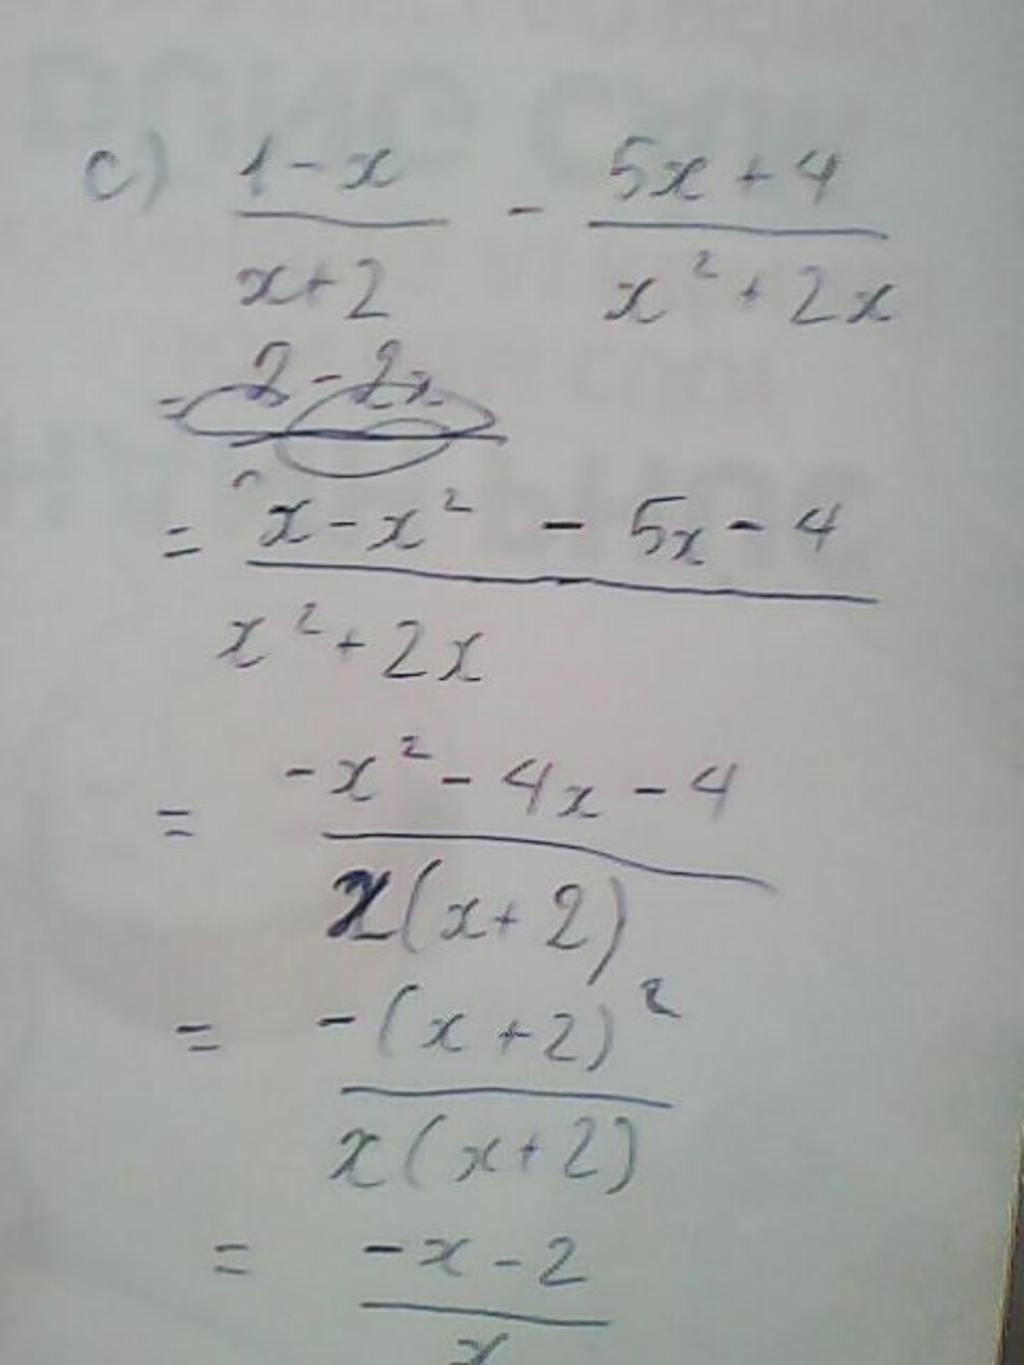 c) \frac{1-x}{x+2} - \frac{5x+4}{x^2+2x}
= 2-2x
= \frac{x-x^2-5x-4}{x^2+2x}
= \frac{-x^2-4x-4}{x(x+2)}
= \frac{-(x+2)^2}{x(x+2)}
= \frac{-x-2}{x}